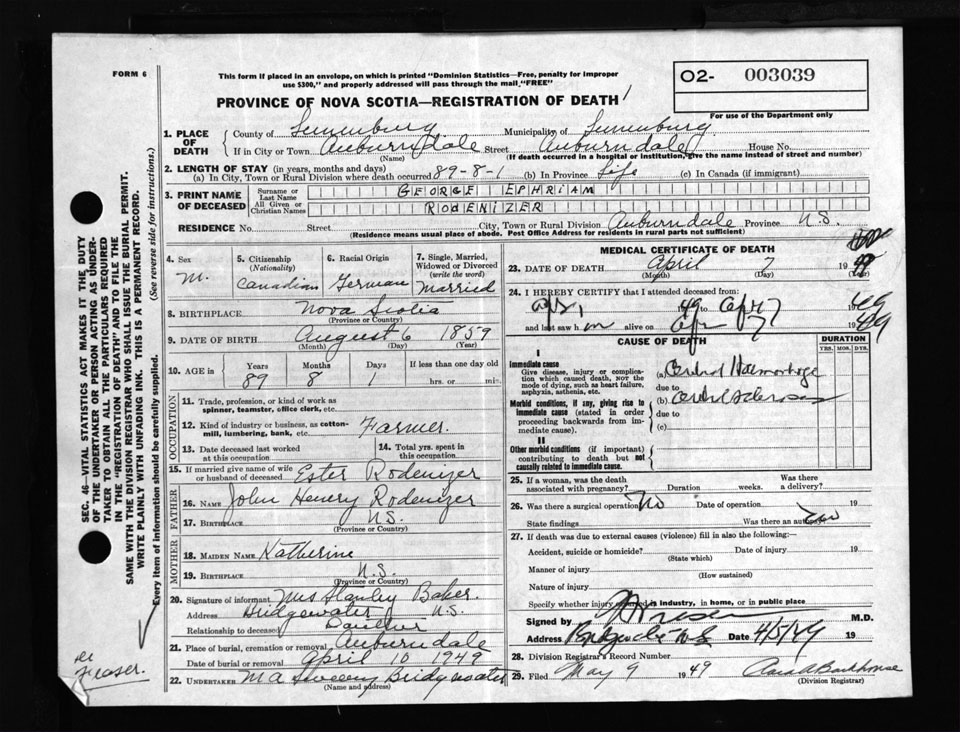 FORM 6
This form if placed in an envelope, on which is printed "Dominion Statistics—Free, penalty for improper
use $300," and properly addressed will pass through the mail "FREE"
O2- 003039
For use of the Department only
PROVINCE OF NOVA SCOTIA—REGISTRATION OF DEATH
1. PLACE OF DEATH
County of Lunenburg Municipality of Lunenburg
If in City or Town Auburndale Street Auburndale House No.
(Name) (If death occurred in a hospital or institution, give the name instead of street and number)
2. LENGTH OF STAY (in years, months and days)
(a) In City, Town or Rural Division where death occurred 89-8-1 (b) In Province Life (c) In Canada (if immigrant)
3. PRINT NAME OF DECEASED
Surname or Last Name GEORGE EPHRIAM
All Given or Christian Names RODENIZER
RESIDENCE No. Street City, Town or Rural Division Auburndale Province N.S.
(Residence means usual place of abode. Post Office Address for residents in rural parts not sufficient)
4. Sex M.
5. Citizenship (Nationality) Canadian
6. Racial Origin German
7. Single, Married, Widowed or Divorced (write the word) Married
8. BIRTHPLACE Nova Scotia
(Province or Country)
9. DATE OF BIRTH August 6 1859
(Month) (Day) (Year)
10. AGE in Years 89 Months 8 Days 1 If less than one day old
hrs. or min.
OCCUPATION
11. Trade, profession, or kind of work as spinner, teamster, office clerk, etc.
12. Kind of industry or business, as cotton-mill, lumbering, bank, etc. Farmer.
13. Date deceased last worked at this occupation
14. Total yrs. spent in this occupation
15. If married give name of wife or husband of deceased Ester Rodenizer
FATHER
16. NAME John Henery Rodenizer
17. BIRTHPLACE N.S.
(Province or Country)
MOTHER
18. MAIDEN NAME Katherine
19. BIRTHPLACE N.S.
(Province or Country)
20. Signature of informant Mrs Stanley Baker.
Address Bridgewater N.S.
Relationship to deceased
21. Place of burial, cremation or removal Auburndale
Date of burial or removal April 10 1949
22. UNDERTAKER M A Sweeny Bridgewater
(Name and address)
MEDICAL CERTIFICATE OF DEATH
23. DATE OF DEATH April 7 19 49
(Month) (Day)
24. I HEREBY CERTIFY that I attended deceased from:
Apr 1 49 to Apr 7 19 49
and last saw h im alive on Apr 7 19 49
CAUSE OF DEATH
DURATION
YRS. MOS. DYS.
I
Immediate cause
Give disease, injury or complication which caused death, NOT the mode of dying, such as heart failure, asphyxia, asthenia, etc.
(a) Cerebral Haemorrhage
due to
Morbid conditions, if any, giving rise to immediate cause (stated in order proceeding backwards from immediate cause).
(b)
due to
(c)
II
Other morbid conditions (if important) contributing to death but not causally related to immediate cause.
25. If a woman, was the death associated with pregnancy? Duration weeks. Was there a delivery?
26. Was there a surgical operation? No Date of operation 19
State findings Was there an autopsy? no
27. If death was due to external causes (violence) fill in also the following:—
Accident, suicide or homicide? Date of injury 19
(State which)
Manner of injury
(How sustained)
Nature of injury
Specify whether injury occurred in industry, in home, or in public place
Signed by M.D.
Address Bridgewater N.S Date 4/5/49 19
28. Division Registrar's Record Number
29. Filed May 9 19 49
(Division Registrar)
SEC. 46—VITAL STATISTICS ACT MAKES IT THE DUTY
OF THE UNDERTAKER OR PERSON ACTING AS UNDER-
TAKER TO OBTAIN ALL THE PARTICULARS REQUIRED
IN THE "REGISTRATION OF DEATH" AND TO FILE THE
SAME WITH THE DIVISION REGISTRAR WHO SHALL ISSUE THE BURIAL PERMIT.
WRITE PLAINLY WITH UNFADING INK. THIS IS A PERMANENT RECORD.
Every item of information should be carefully supplied. (See reverse side for instructions.)
Dr
Fraser.